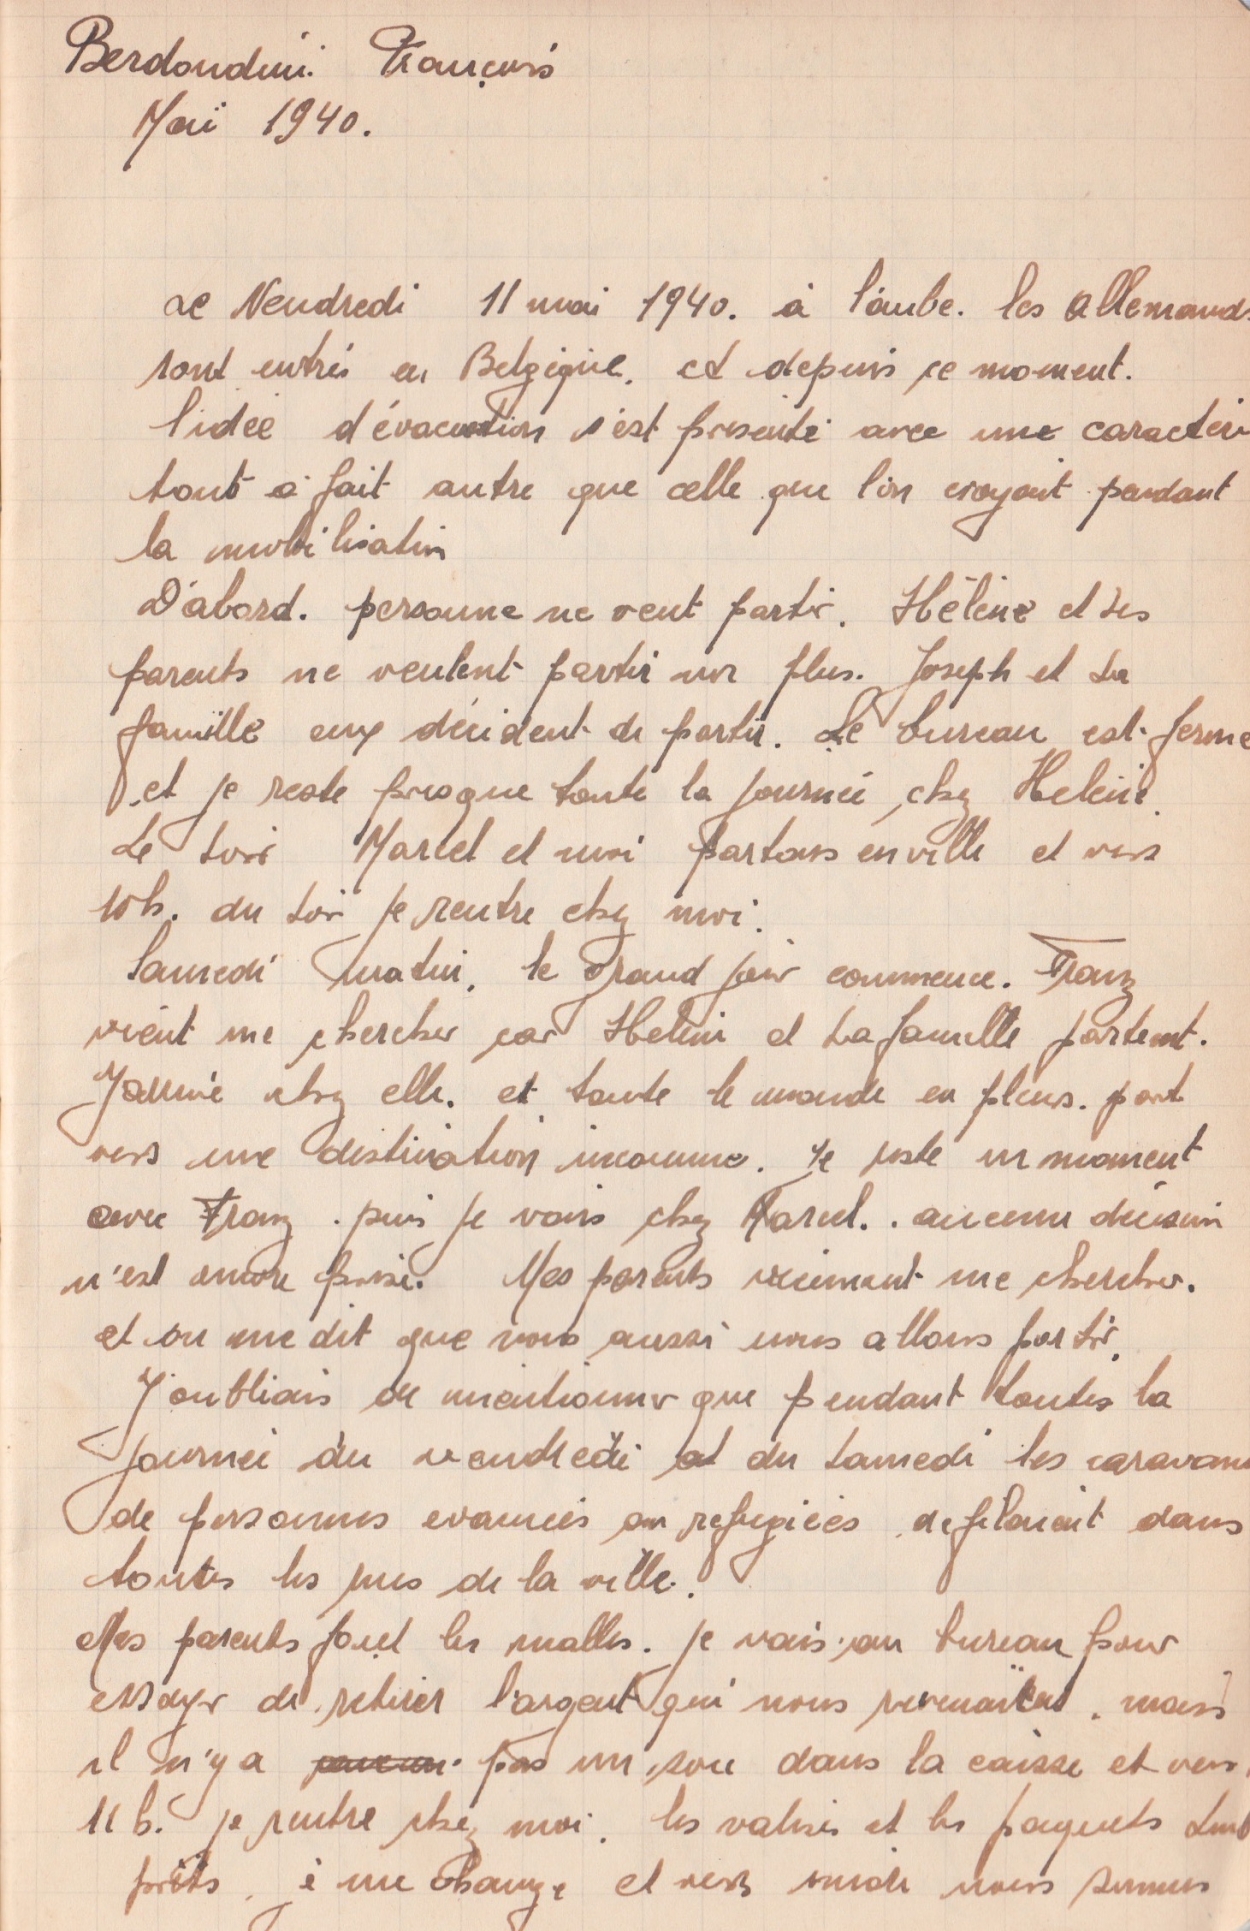 Berdondini François
Mai 1940.
Le Vendredi 11 mai 1940. à l'aube. les allemands
sont entrés en Belgique. et depuis ce moment.
l'idée d'évacuation s'est presenté avec une caractère
tout à fait autre que celle que l'on croyait pendant
la mobilisation
D'abord. personne ne veut partir. Hélène et ses
parents ne veulent partir non plus. Joseph et sa
famille eux décident de partir. Le bureau est fermé
et je reste presque toute la journée chez Helène.
Le soir Marcel et moi partons en ville et vers
10h. du soir je rentre chez moi.
Samedi matin, le grand jour commence. Franz
vient me chercher car Helène et sa famille partent.
J'arrive chez elle. et toute le monde en pleurs. part
vers une destination inconnue. Je reste un moment
avec Franz. puis je vais chez Marcel. aucune décision
n'est encore prise. Mes parents viennent me chercher.
et on me dit que nous aussi nous allons partir.
J'oubliais de mentionner que pendant toutes la
journée du vendredi et du samedi les caravanes
de personnes evacuées ou refugiées defilaient dans
toutes les rues de la ville.
Mes parents font les malles. je vais au bureau pour
essayer de retirer l'argent qui nous revenaient. mais
il n'y a pas un sou dans la caisse et vers
11 h. je rentre chez moi. les valises et les paquets sont
prêts. je me change et vers midi nous sommes